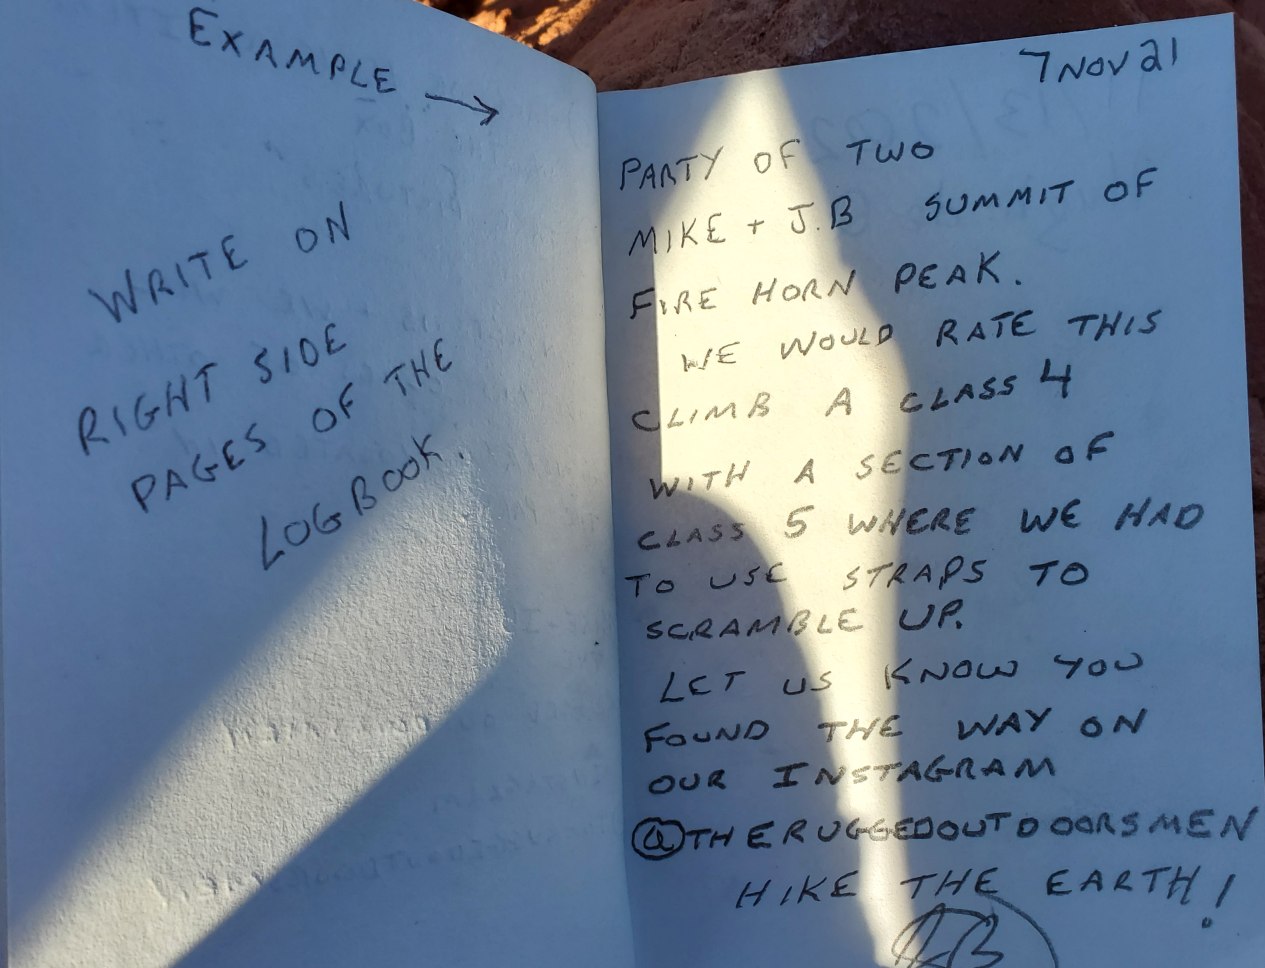 EXAMPLE →
WRITE ON
RIGHT SIDE
PAGES OF THE
LOGBOOK.
7 NOV 21
PARTY OF TWO
MIKE + J.B SUMMIT OF
FIRE HORN PEAK.
WE WOULD RATE THIS
CLIMB A CLASS 4
WITH A SECTION OF
CLASS 5 WHERE WE HAD
TO USE STRAPS TO
SCRAMBLE UP.
LET US KNOW YOU
FOUND THE WAY ON
OUR INSTAGRAM
@THERUGGEDOUTDOORSMEN
HIKE THE EARTH!